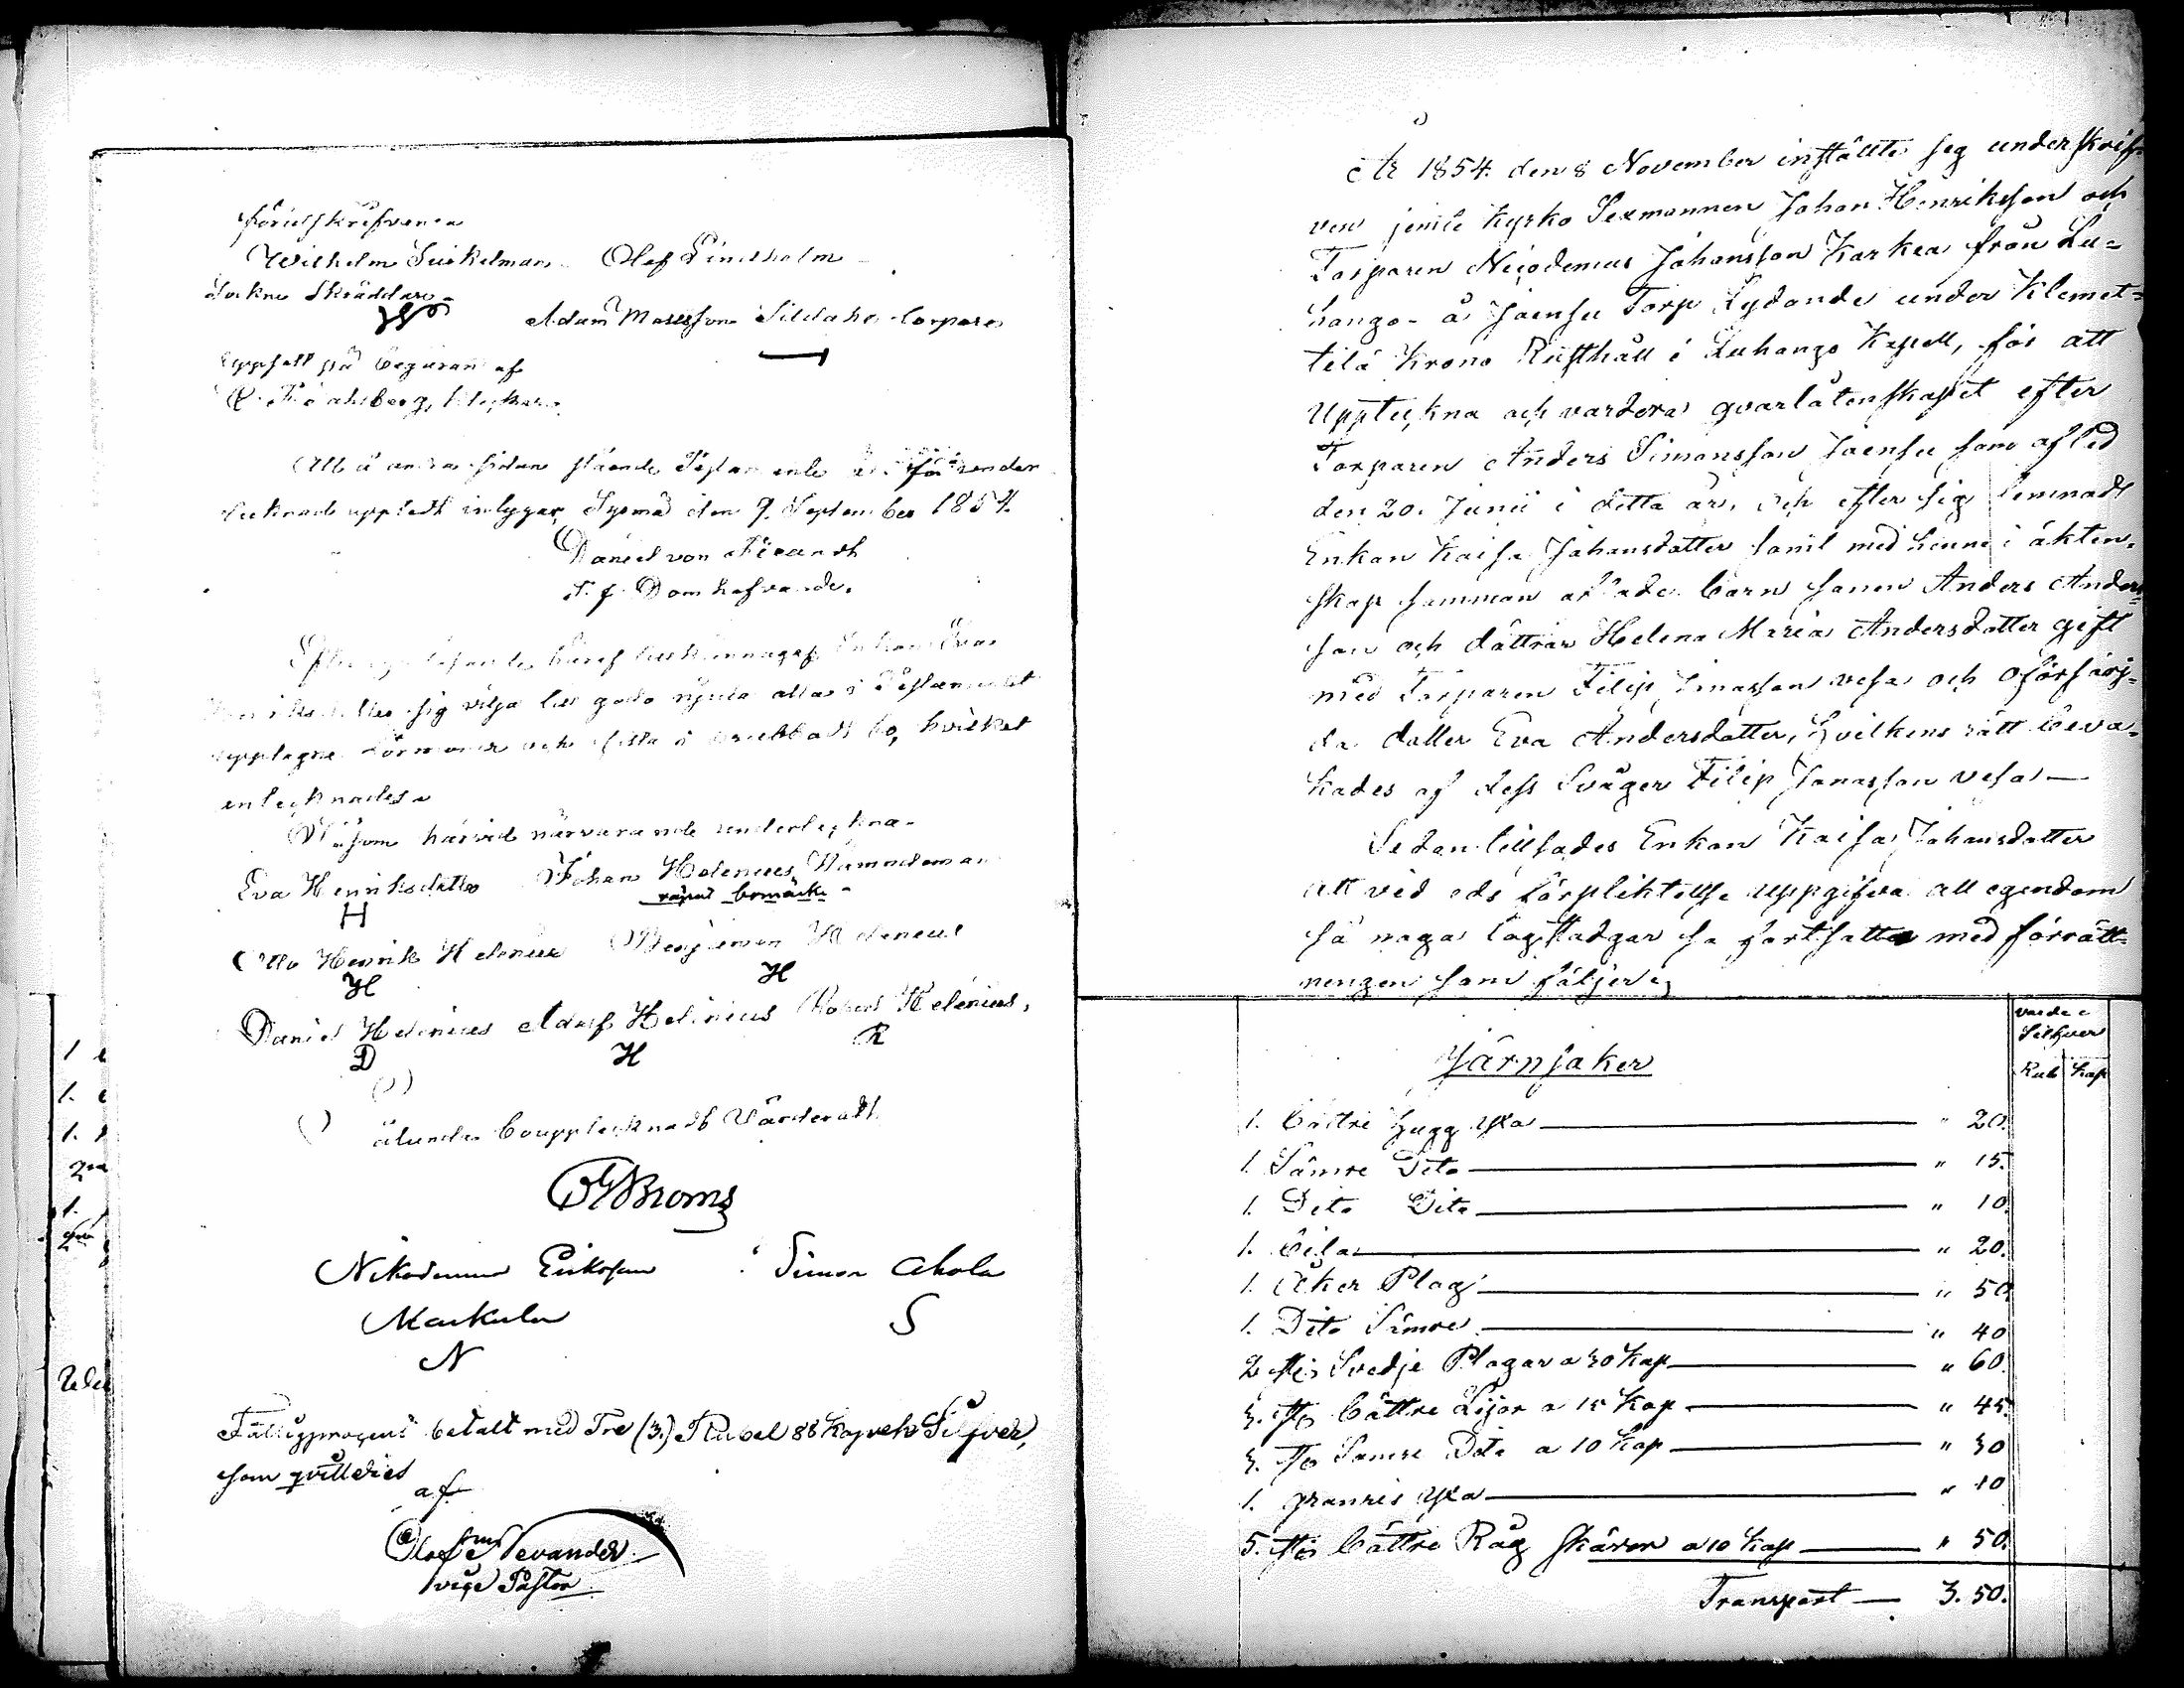 Wilhelm Olof Lindholm
Sockne Skräddare
Adam Matsson Torpare
Uppsatt på begäran af
Att å andra sidan stående Testamente är
uppläst intygar, Sysmä den 9. September 1854.
Daniel von Fieandt
T. f. Domhafvande.
sig vilja till godo njuta alla i Testamentet
upptagne förmoner och sitta i bo, hvilket
antecknades
som härvid närvarande underteckna
Eva Henriksdotter Johan Helenius, Nämndeman
H bomärke
Otto Henrik Helenius Benjamin Helenius
H H
Daniel Helenius Adolf Helenius Robert Helenius,
D H R
ålunda bouppteknadt Värderadt
Broms
Nikodemus Eriksson Simon Ahola
Markula S
N
Fattigprocent betalt med Tre (3.) Rubel 88 Kopek Silfver,
som qvitteras
af
Olof Levander
vice Pastor
År 1854. den 8 November instälte sig underskrif-
ven jemte Kyrko Sexmannen Johan Henriksson och
Torparen Nicodemus Johansson Karkea från Lu-
hango å Joensu Torp Lydande under Klemet-
tilä Krono Rusthåll i Luhango Kapell, för att
Uppteckna och värdera qvarlåtenskapet efter
Torparen Anders Simonsson Joensu som afled
den 20. Junii i detta år, och efter sig lemnadt
Enkan Kaisa Johansdotter samt med henne i äkten-
skap samman aflade barn sonen Anders Anders-
son och döttrar Helena Maria Andersdotter gift
med Torparen Filip Jonasson vesa och oförsörj-
da dotter Eva Andersdotter, hvilkens rätt beva-
kades af dess Svåger Filip Jonasson vesa —
Sedan tillsades Enkan Kaisa Johansdotter
att vid eds förpliktelse uppgifva all egendom
så noga lag stadgar så fortsattes med förrätt-
ningen som följer
värde i
Silfver
Järnsaker
Rub Kop
1. bättre hugg yxa — " 20.
1. Sämre Dito — " 15.
1. Dito Dito — " 10.
1. bila — " 20.
1. Åker Plog — " 50
1. Dito Sämre — " 40
2. st. Svedje Plogar a 30 Kop — " 60.
3. st. bättre Lijor a 15 Kop — " 45.
3. st. Sämre Dito a 10 Kop — " 30
1. granris yxa — " 10
5. st. bättre Råg skäror a 10 Kop — " 50.
Transport — 3. 50.